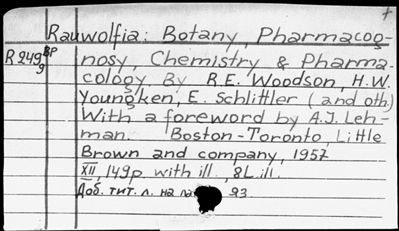 Rauwolfia: Botany, Pharmacog-
R249 BP nosy, Chemistry & Pharma-
9 cology. By R.E. Woodson, H.W.
Youngken, E. Schlittler (and oth.)
With a foreword by A.J. Leh-
man. Boston-Toronto, Little
Brown and company, 1957
XII, 149p. with ill., 8L. ill.
Доб. тит. л. на 93.